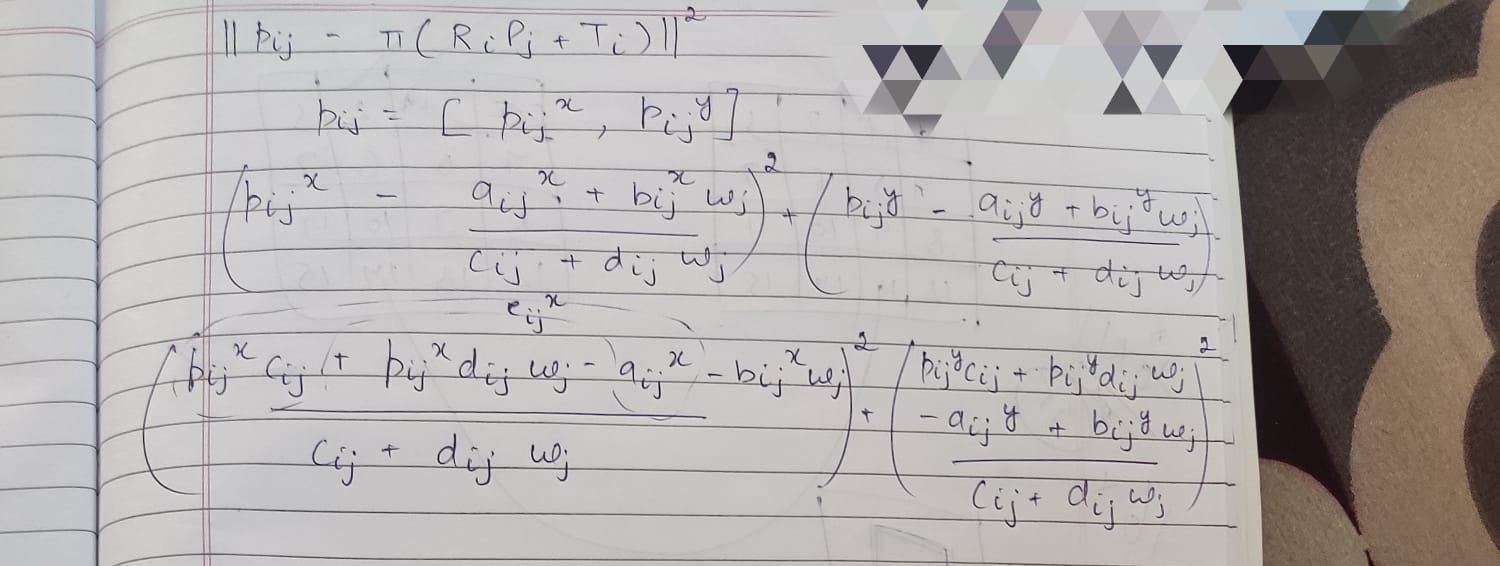 || pij - π ( Ri Pj + Ti ) ||²
pij = [ pij^x , pij^y ]
( pij^x - (aij^x + bij^x wj) / (cij + dij wj) )² + ( pij^y - (aij^y + bij^y wj) / (cij + dij wj) )²
eij^x
( (pij^x cij + pij^x dij wj - aij^x - bij^x wj) / (cij + dij wj) )² + ( (pij^y cij + pij^y dij wj - aij^y + bij^y wj) / (cij + dij wj) )²